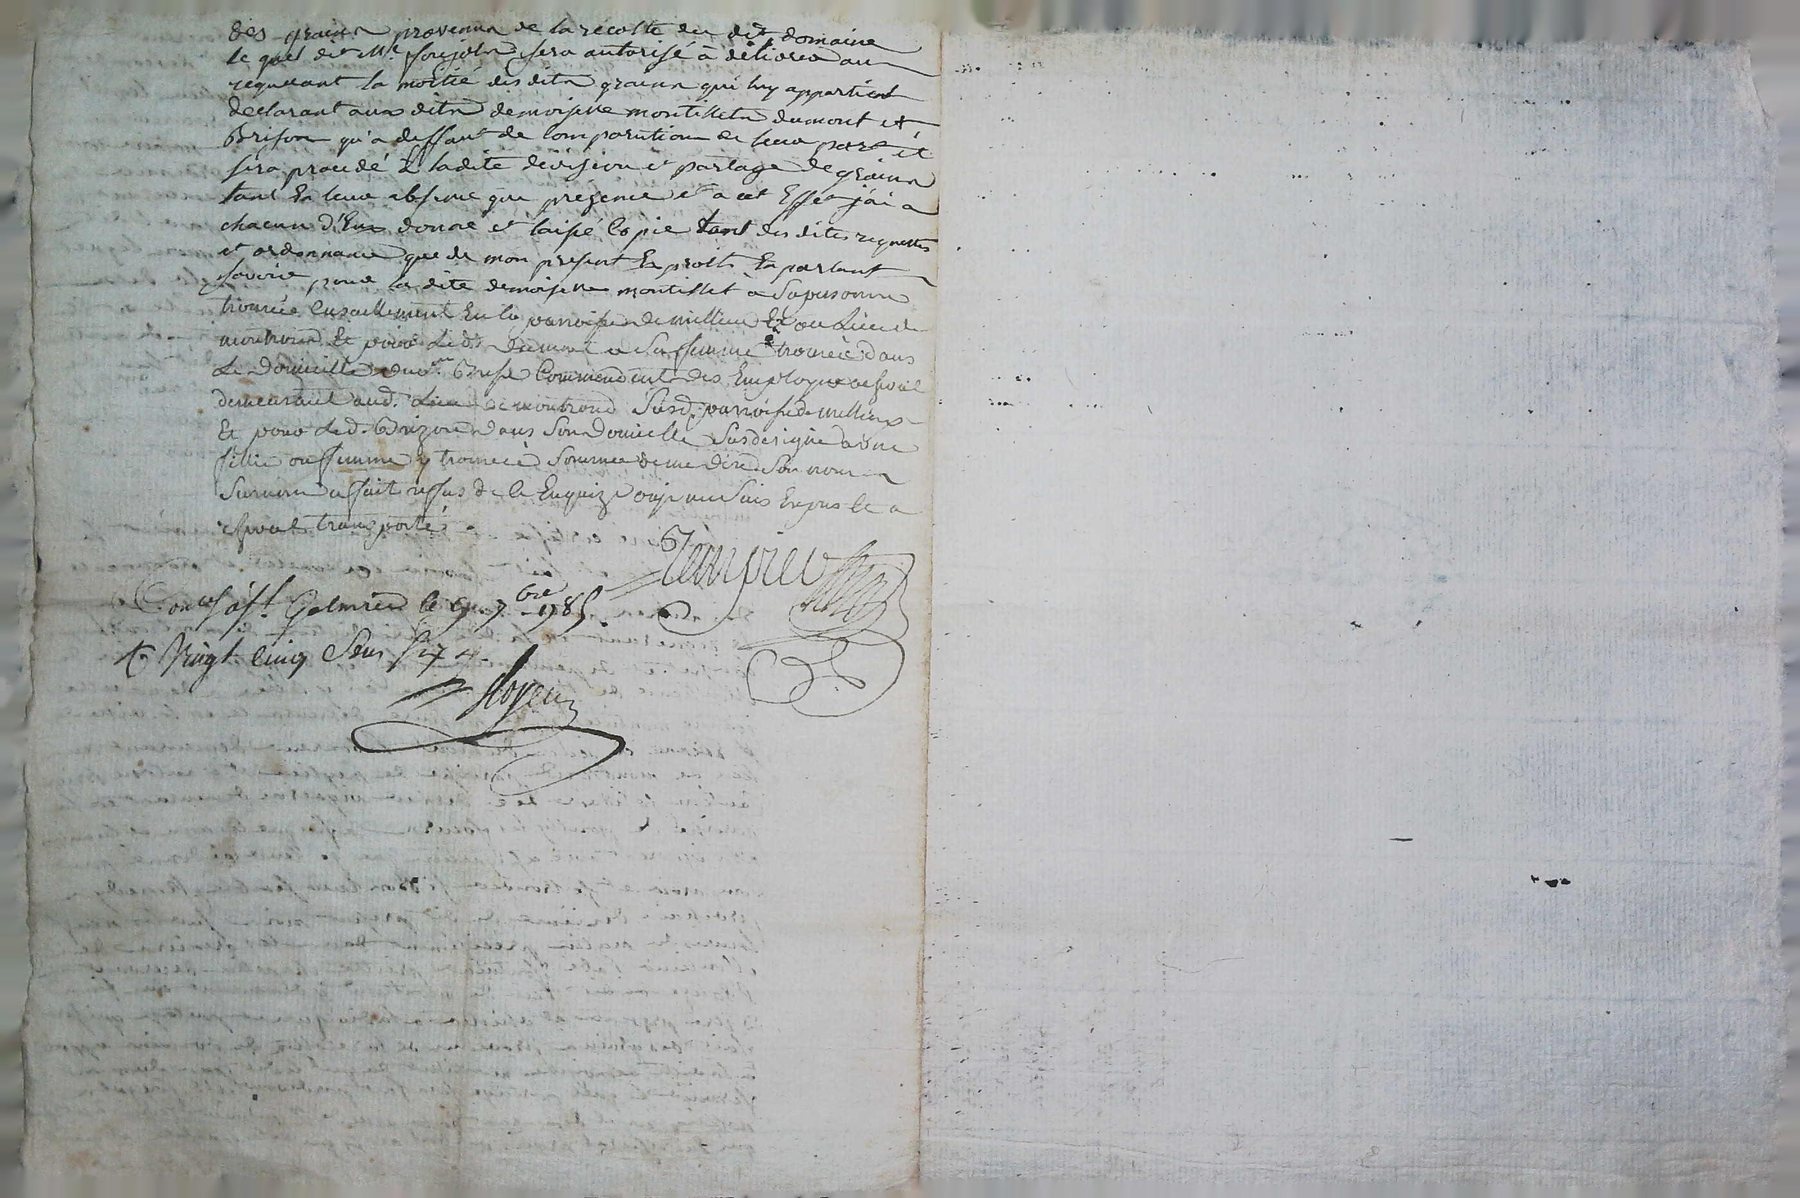 des grains provenus de la récolte du dit domaine
le quel dit Me forjots sera autorisé à délivrer au
requerant la moitié des dits grains qui luy appartient
declarant aux dits demoiselle montillet dumont et
Brison qu'a deffaut de comparution de leur part il
sera procedé à ladite division et partage de grains
tant en leur absence que presence et a cet Effet j'ai a
chacun d'Eux donné et laissé Copie tant des dites requettes
et ordonnance que de mon present Exploit En parlant
savoir pour la dite demoiselle montillet à sa personne
trouvée en la parroisse de millieu au Lieu de
montrond Et pour Led. Dumont a sa femme trouvée dans
Le Domicille du Sr. Commendant des Employes
demeurant aud. Lieu de montrond Susd. parroisse de
Et pour Led. Brizon dans Son Domicille Susdesigné a une
fille ou femme y trouvée Sommée de me dire Son nom
Surnom a fait reffus de le Enquize ou je me Suis Expres
transporté
Conlé à St. Galmier le 9 7bre 1785.
R Vingt cinq Sous